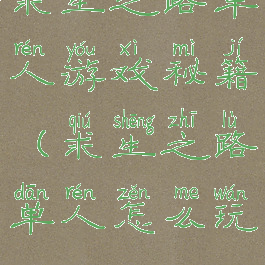 求生之路单
rén yóu xì mì jí
人游戏秘籍
qiú shēng zhī lù
(求生之路
dān rén zěn me wán
单人怎么玩